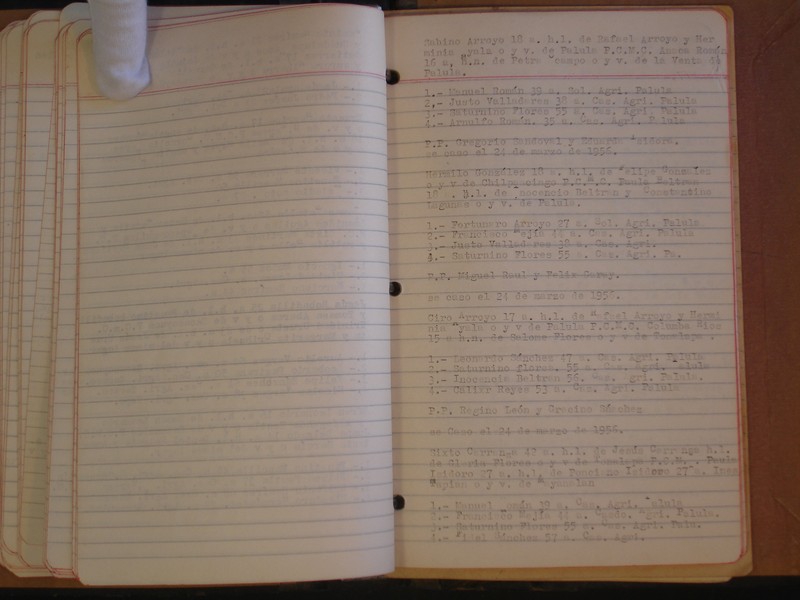 Sabino Arroyo 18 a. h.l. de Rafael Arroyo y Her
minia yala o y v. de Palula P.C.M.C. Román
16 a. h.n. de Petra campo o y v. de la Venta de
Palula.
1.- Manuel Román 39 a. Sol. Agri. Palula
2.- Justo Valladares 38 a. Cas. Agri. Palula
3.- Saturnino Flores 55 a. Cas. Agri. Palula
4.- Arnulfo Román. 35 a. Cas. Agri. Palula
P.P. Gregorio Sandoval y Eduarda
se caso el 24 de marzo de 1956.
Hermilo González 18 a. h.l. de elipe Gonzalez
o y v de Chilpancingo P.C.M.C. Paula Beltran
18 a. h.l. de nocencio Beltran y Constantina
o y v. de Palula.
1.- Fortunero Arroyo 27 a. Sol. Agri. Palula
2.- Francisco ejía 44 a. Cas. Agri. Palula
3.- Justo Valladares 38 a. Cas. Agri.
4.- Saturnino Flores 55 a. Cas. Agri. Pa.
P.P. Miguel Saul y Felix Garay.
se caso el 24 de marzo de 1956.
Ciro Arroyo 17 a. h.l. de afael Arroyo y Hermi
nia yala o y v de Palula P.C.M.C. Columba
15 a h.n. de Flores o y v de
1.- Leonardo Sánchez 47 a. Cas. agri. Palula
2.- Saturnino flores. 55 a. Cas. Agri. Palula
3.- Inocencio Beltran 56. Cas. gri. Palula.
4.- Reyes 53 a. Cas. Agri. Palula
P.P. Regino León y Gracina Sánchez
se Caso el 24 de marzo de 1956.
Sixto Carranga 42 a. h.l. de Jesús Carranga h.l.
de Gloria Flores o y v de P.C.M. Paula
Isidoro 27 a. h.l. de Isidoro 27 a.
o y v. de
1.- Manuel omán 39 a. Cas. Agri. alula
2.- Francisco Mejía 44 a. Agri. Palula.
3.- Saturnino Flores 55 a. Cas. Agri.
4.- idel Sánchez 57 a. Cas. Agri.